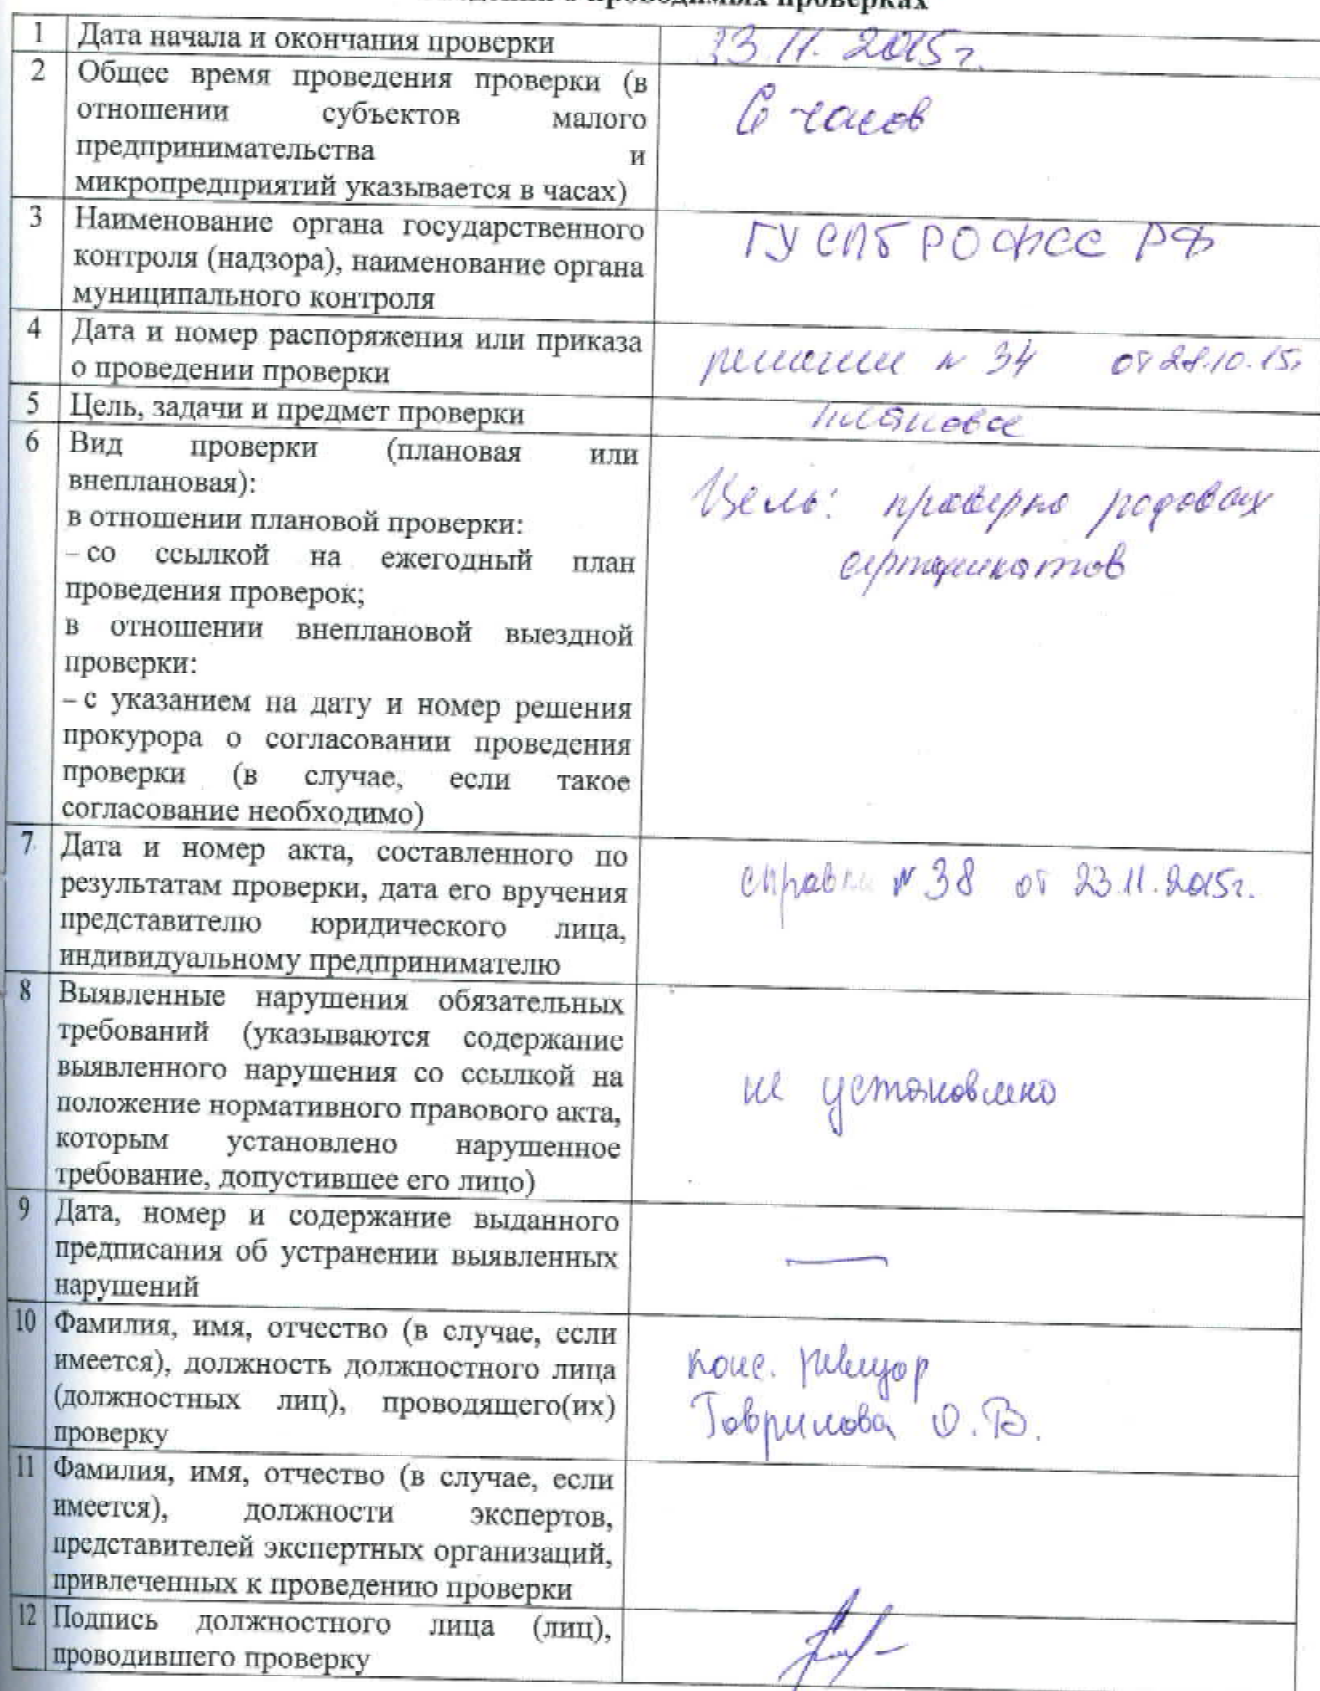 о проводимых проверках
1 Дата начала и окончания проверки
23.11.2015г.
2 Общее время проведения проверки (в
отношении субъектов малого
предпринимательства и
микропредприятий указывается в часах)
6 часов
3 Наименование органа государственного
контроля (надзора), наименование органа
муниципального контроля
ГУ СПб РОФСС РФ
4 Дата и номер распоряжения или приказа
о проведении проверки
решение № 34 от 28.10.15г
5 Цель, задачи и предмет проверки
плановая
6 Вид проверки (плановая или
внеплановая):
в отношении плановой проверки:
– со ссылкой на ежегодный план
проведения проверок;
в отношении внеплановой выездной
проверки:
– с указанием на дату и номер решения
прокурора о согласовании проведения
проверки (в случае, если такое
согласование необходимо)
Цель: проверка родовых
сертификатов
7 Дата и номер акта, составленного по
результатам проверки, дата его вручения
представителю юридического лица,
индивидуальному предпринимателю
справка № 38 от 23.11.2015г.
8 Выявленные нарушения обязательных
требований (указываются содержание
выявленного нарушения со ссылкой на
положение нормативного правового акта,
которым установлено нарушенное
требование, допустившее его лицо)
не установлено
9 Дата, номер и содержание выданного
предписания об устранении выявленных
нарушений
—
10 Фамилия, имя, отчество (в случае, если
имеется), должность должностного лица
(должностных лиц), проводящего(их)
проверку
конс. ревизор
Гаврилова О.В.
11 Фамилия, имя, отчество (в случае, если
имеется), должности экспертов,
представителей экспертных организаций,
привлеченных к проведению проверки
12 Подпись должностного лица (лиц),
проводившего проверку